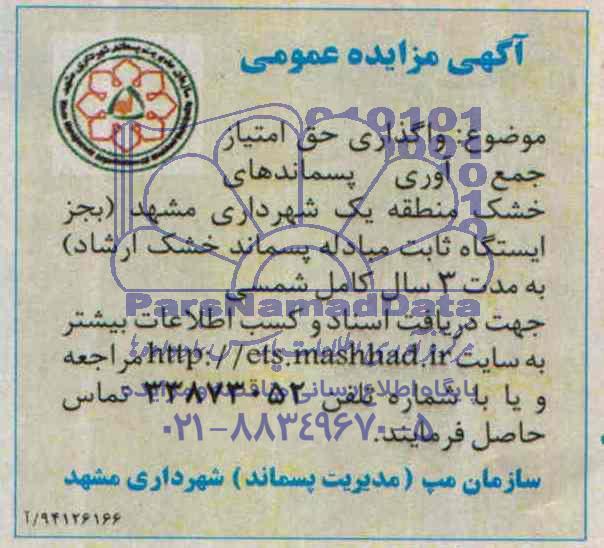 آگهی مزایده عمومی
موضوع: واگذاری حق امتیاز
جمع آوری پسماندهای
خشک منطقه یک شهرداری مشهد (بجز
ایستگاه ثابت مبادله پسماند خشک ارشاد)
به مدت ۳ سال کامل شمسی
ParsNamadData
جهت دریافت اسناد و کسب اطلاعات بیشتر
به سایت http://ets.mashhad.ir مراجعه
و یا با شماره تلفن ۳۳۸۷۳۰۵۲ تماس
حاصل فرمایند.
۰۲۱-۸۸۳۴۹۶۷۰-۵
سازمان مپ (مدیریت پسماند) شهرداری مشهد
۹۴۱۲۶۱۶۶/آ